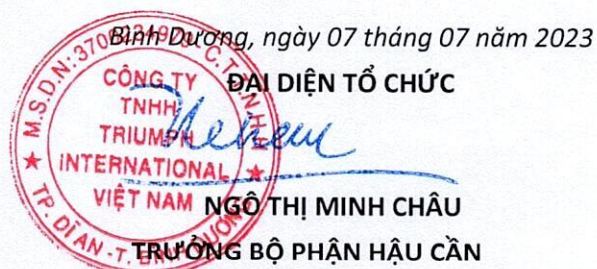 Bình Dương, ngày 07 tháng 07 năm 2023
ĐẠI DIỆN TỔ CHỨC
CÔNG TY
TNHH
TRIUMPH
INTERNATIONAL
VIỆT NAM
M.S.D.N:
C.T.T.N.H.H
TP. DĨ AN - T. BÌNH DƯƠNG
NGÔ THỊ MINH CHÂU
TRƯỞNG BỘ PHẬN HẬU CẦN